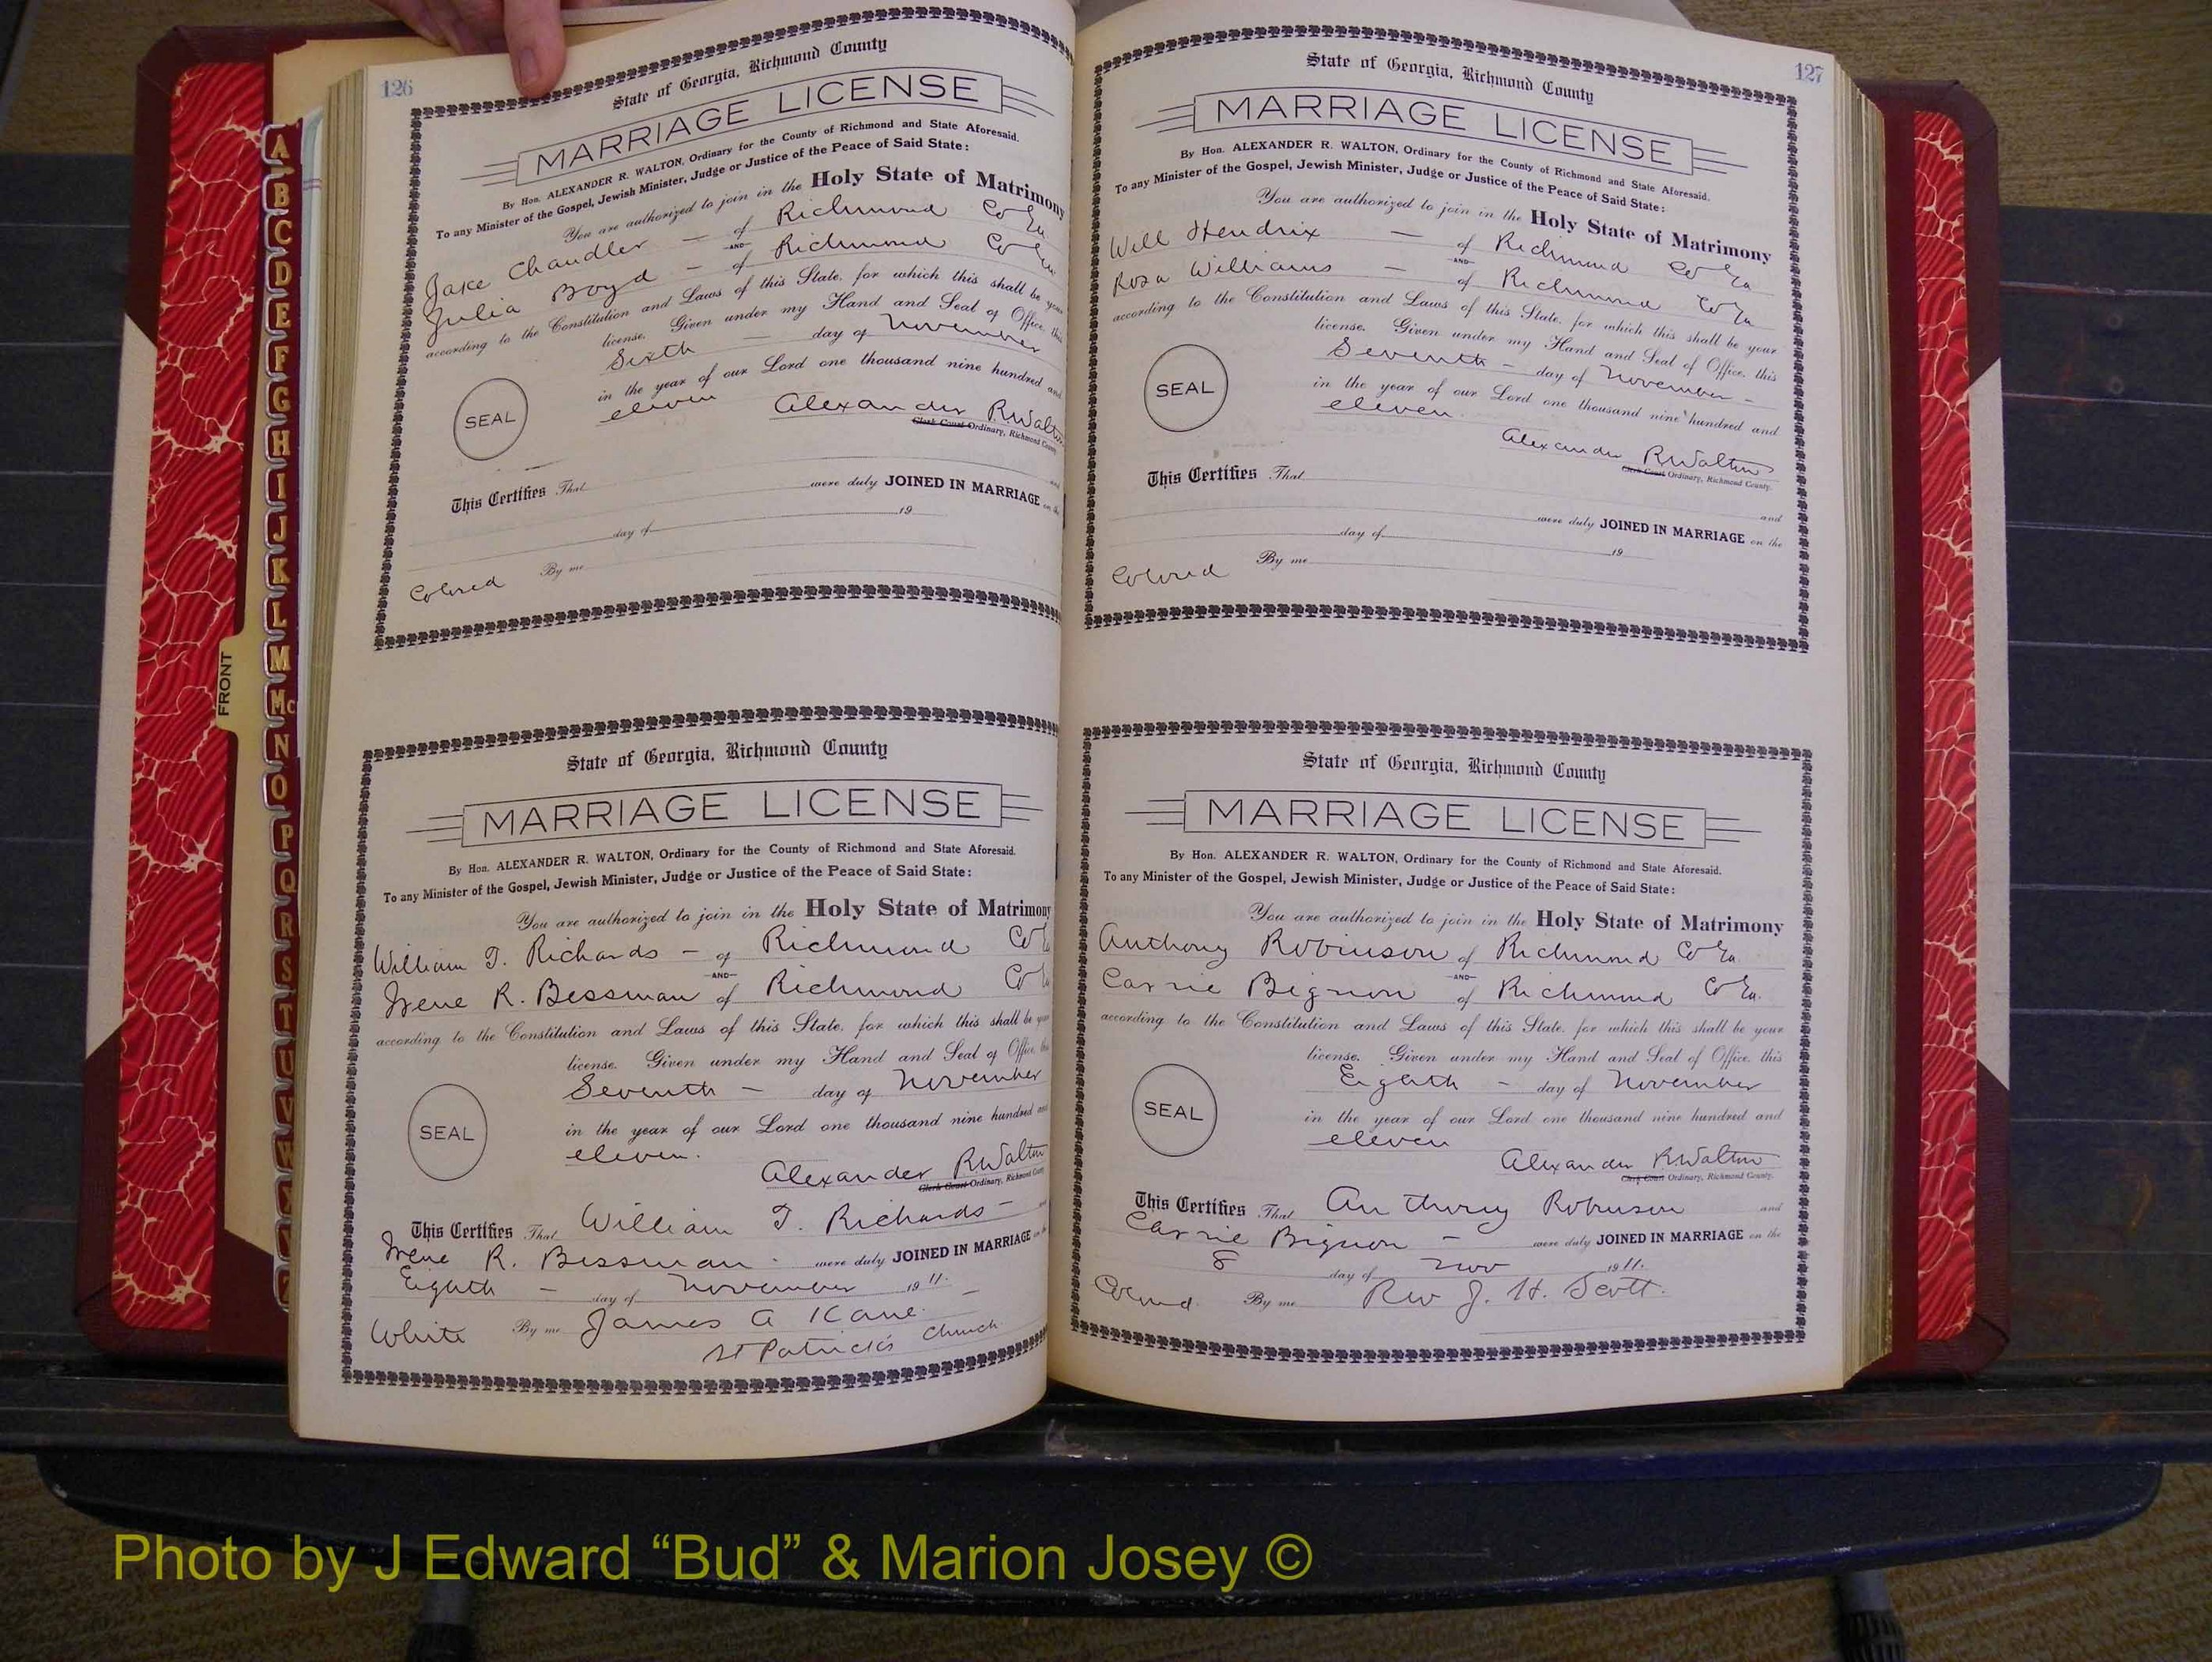 126
State of Georgia, Richmond County
MARRIAGE LICENSE
By Hon. ALEXANDER R. WALTON, Ordinary for the County of Richmond and State Aforesaid.
To any Minister of the Gospel, Jewish Minister, Judge or Justice of the Peace of Said State:
You are authorized to join in the Holy State of Matrimony
Jake Chandler — of Richmond Co Ga
AND
Julia Boyd — of Richmond Co Ga
according to the Constitution and Laws of this State, for which this shall be your
license. Given under my Hand and Seal of Office, this
Sixth — day of November
in the year of our Lord one thousand nine hundred and
eleven
SEAL
Alexander R Walton
Clerk Court Ordinary, Richmond County.
This Certifies That and
were duly JOINED IN MARRIAGE on the
day of 19
Colored By me
State of Georgia, Richmond County
MARRIAGE LICENSE
By Hon. ALEXANDER R. WALTON, Ordinary for the County of Richmond and State Aforesaid.
To any Minister of the Gospel, Jewish Minister, Judge or Justice of the Peace of Said State:
You are authorized to join in the Holy State of Matrimony
William T. Richards — of Richmond Co Ga
AND
Irene R. Bessman of Richmond Co Ga
according to the Constitution and Laws of this State, for which this shall be your
license. Given under my Hand and Seal of Office, this
Seventh — day of November
in the year of our Lord one thousand nine hundred and
eleven.
SEAL
Alexander R Walton
Clerk Court Ordinary, Richmond County
This Certifies That William T. Richards — and
Irene R. Bessman were duly JOINED IN MARRIAGE on the
Eighth — day of November 1911.
White By me James A Kane —
St Patrick's Church
127
State of Georgia, Richmond County
MARRIAGE LICENSE
By Hon. ALEXANDER R. WALTON, Ordinary for the County of Richmond and State Aforesaid.
To any Minister of the Gospel, Jewish Minister, Judge or Justice of the Peace of Said State:
You are authorized to join in the Holy State of Matrimony
Will Hendrix — of Richmond Co Ga
AND
Rosa Williams — of Richmond Co Ga
according to the Constitution and Laws of this State, for which this shall be your
license. Given under my Hand and Seal of Office, this
Seventh — day of November —
in the year of our Lord one thousand nine hundred and
eleven.
SEAL
Alexander R Walton
Clerk Court Ordinary, Richmond County.
This Certifies That
and
were duly JOINED IN MARRIAGE on the
day of 19
Colored By me
State of Georgia, Richmond County
MARRIAGE LICENSE
By Hon. ALEXANDER R. WALTON, Ordinary for the County of Richmond and State Aforesaid.
To any Minister of the Gospel, Jewish Minister, Judge or Justice of the Peace of Said State:
You are authorized to join in the Holy State of Matrimony
Anthony Robinson of Richmond Co Ga
AND
Carrie Bignon of Richmond Co Ga.
according to the Constitution and Laws of this State, for which this shall be your
license. Given under my Hand and Seal of Office, this
Eighth — day of November
in the year of our Lord one thousand nine hundred and
eleven
SEAL
Alexander R Walton
Clerk Court Ordinary, Richmond County.
This Certifies That Anthony Robinson and
Carrie Bignon — were duly JOINED IN MARRIAGE on the
8 day of Nov 1911.
Colored. By me Rev J. H. Scott.
FRONT
A
B
C
D
E
F
G
H
I
J
K
L
M
Mc
N
O
P
Q
R
S
T
U
V
W
Photo by J Edward “Bud” & Marion Josey ©